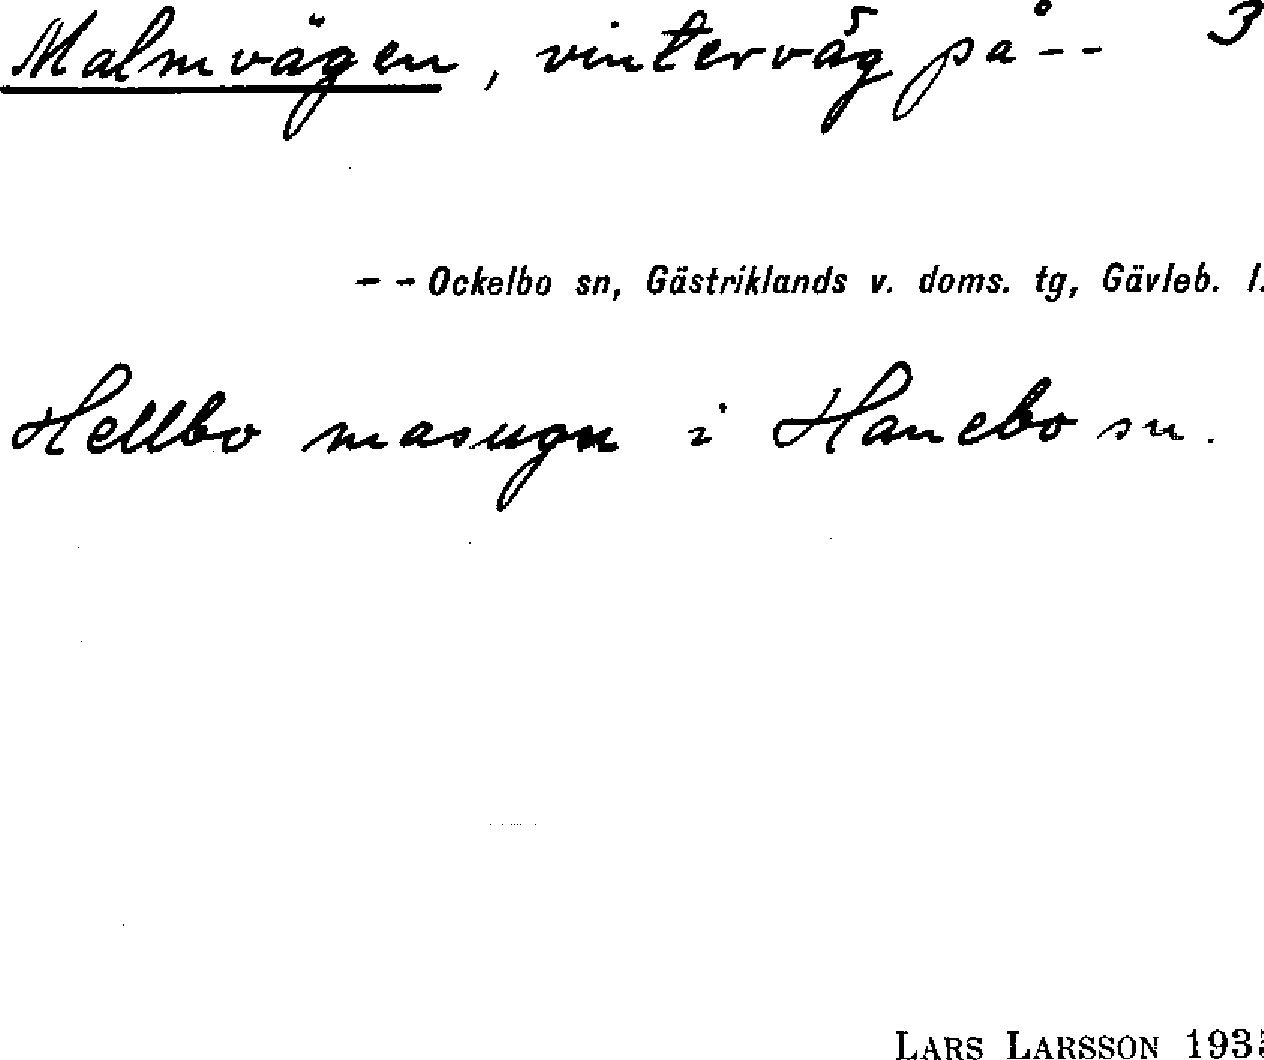 Malmvägen, vinterväg på -- 3
-- Ockelbo sn, Gästriklands v. doms. tg, Gävleb. l.
Hellbo masugn i Hanebo sn.
LARS LARSSON